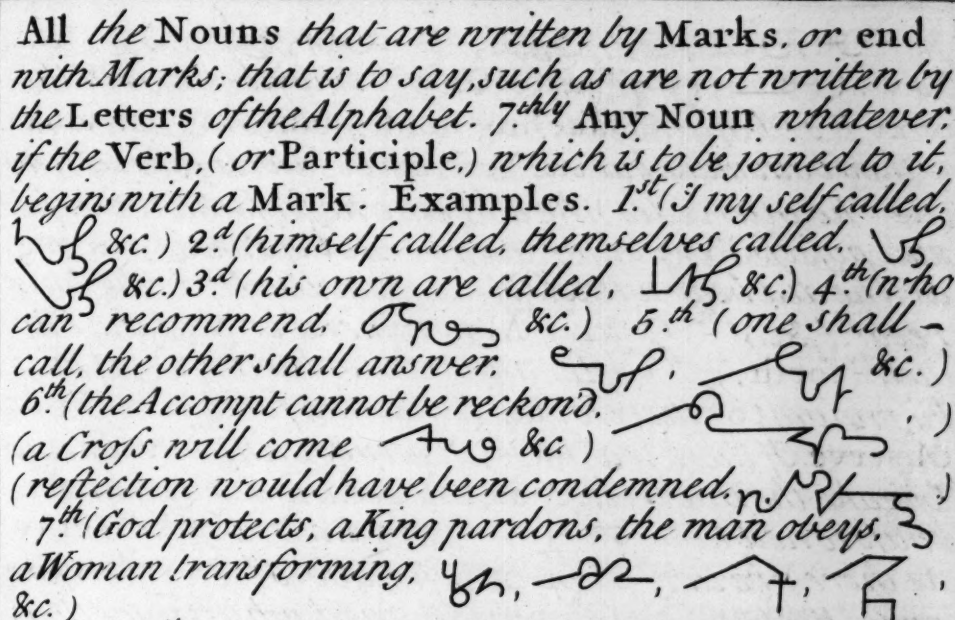 All the Nouns that are written by Marks. or end
with Marks; that is to say, such as are not written by
the Letters of the Alphabet. 7.thly Any Noun whatever,
if the Verb, (or Participle,) which is to be joined to it,
begins with a Mark. Examples. 1.st (I my self called,
&c.) 2.d (himself called, themselves called,
&c.) 3.d (his own are called, &c.) 4.th (who
can recommend. &c.) 5.th (one shall –
call, the other shall answer. , &c.)
6.th (the Accompt cannot be reckon'd. , )
(a Croſs will come &c.)
(reflection would have been condemned. .)
7.th (God protects, a King pardons, the man obeys,
a Woman transforming, , , , ,
&c.)